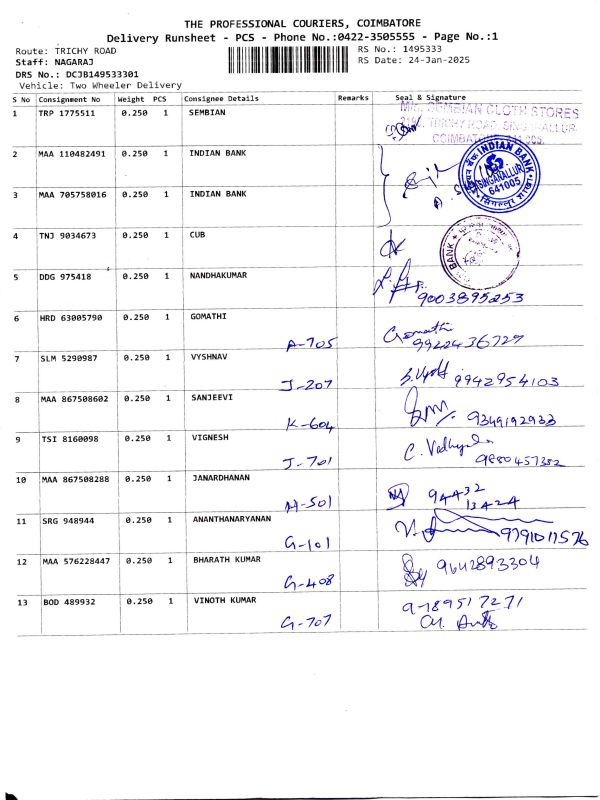 THE PROFESSIONAL COURIERS, COIMBATORE
Delivery Runsheet - PCS - Phone No.:0422-3505555 - Page No.:1
Route: TRICHY ROAD RS No.: 1495333
Staff: NAGARAJ RS Date: 24-Jan-2025
DRS No.: DCJB149533301
Vehicle: Two Wheeler Delivery
S No Consignment No Weight PCS Consignee Details Remarks Seal & Signature
1 TRP 1775511 0.250 1 SEMBIAN
SEMBIAN CLOTH STORES
TRICHY ROAD, SINGANALLUR,
COIMBATORE
2 MAA 110482491 0.250 1 INDIAN BANK
INDIAN BANK
SINGANALLUR
641005
3 MAA 705758016 0.250 1 INDIAN BANK
4 TNJ 9034673 0.250 1 CUB
BANK
5 DDG 975418 0.250 1 NANDHAKUMAR
9003895253
6 HRD 63005790 0.250 1 GOMATHI
A-705 Gomathi
9922436727
7 SLM 5290987 0.250 1 VYSHNAV
J-207 9942954103
8 MAA 867508602 0.250 1 SANJEEVI
K-604 9349192933
9 TSI 8160098 0.250 1 VIGNESH
J-701 9880457382
10 MAA 867508288 0.250 1 JANARDHANAN
H-501 94432
13424
11 SRG 948944 0.250 1 ANANTHANARYANAN
G-101 9791011576
12 MAA 576228447 0.250 1 BHARATH KUMAR
G-408 9642893304
13 BOD 489932 0.250 1 VINOTH KUMAR
G-707 9789517271